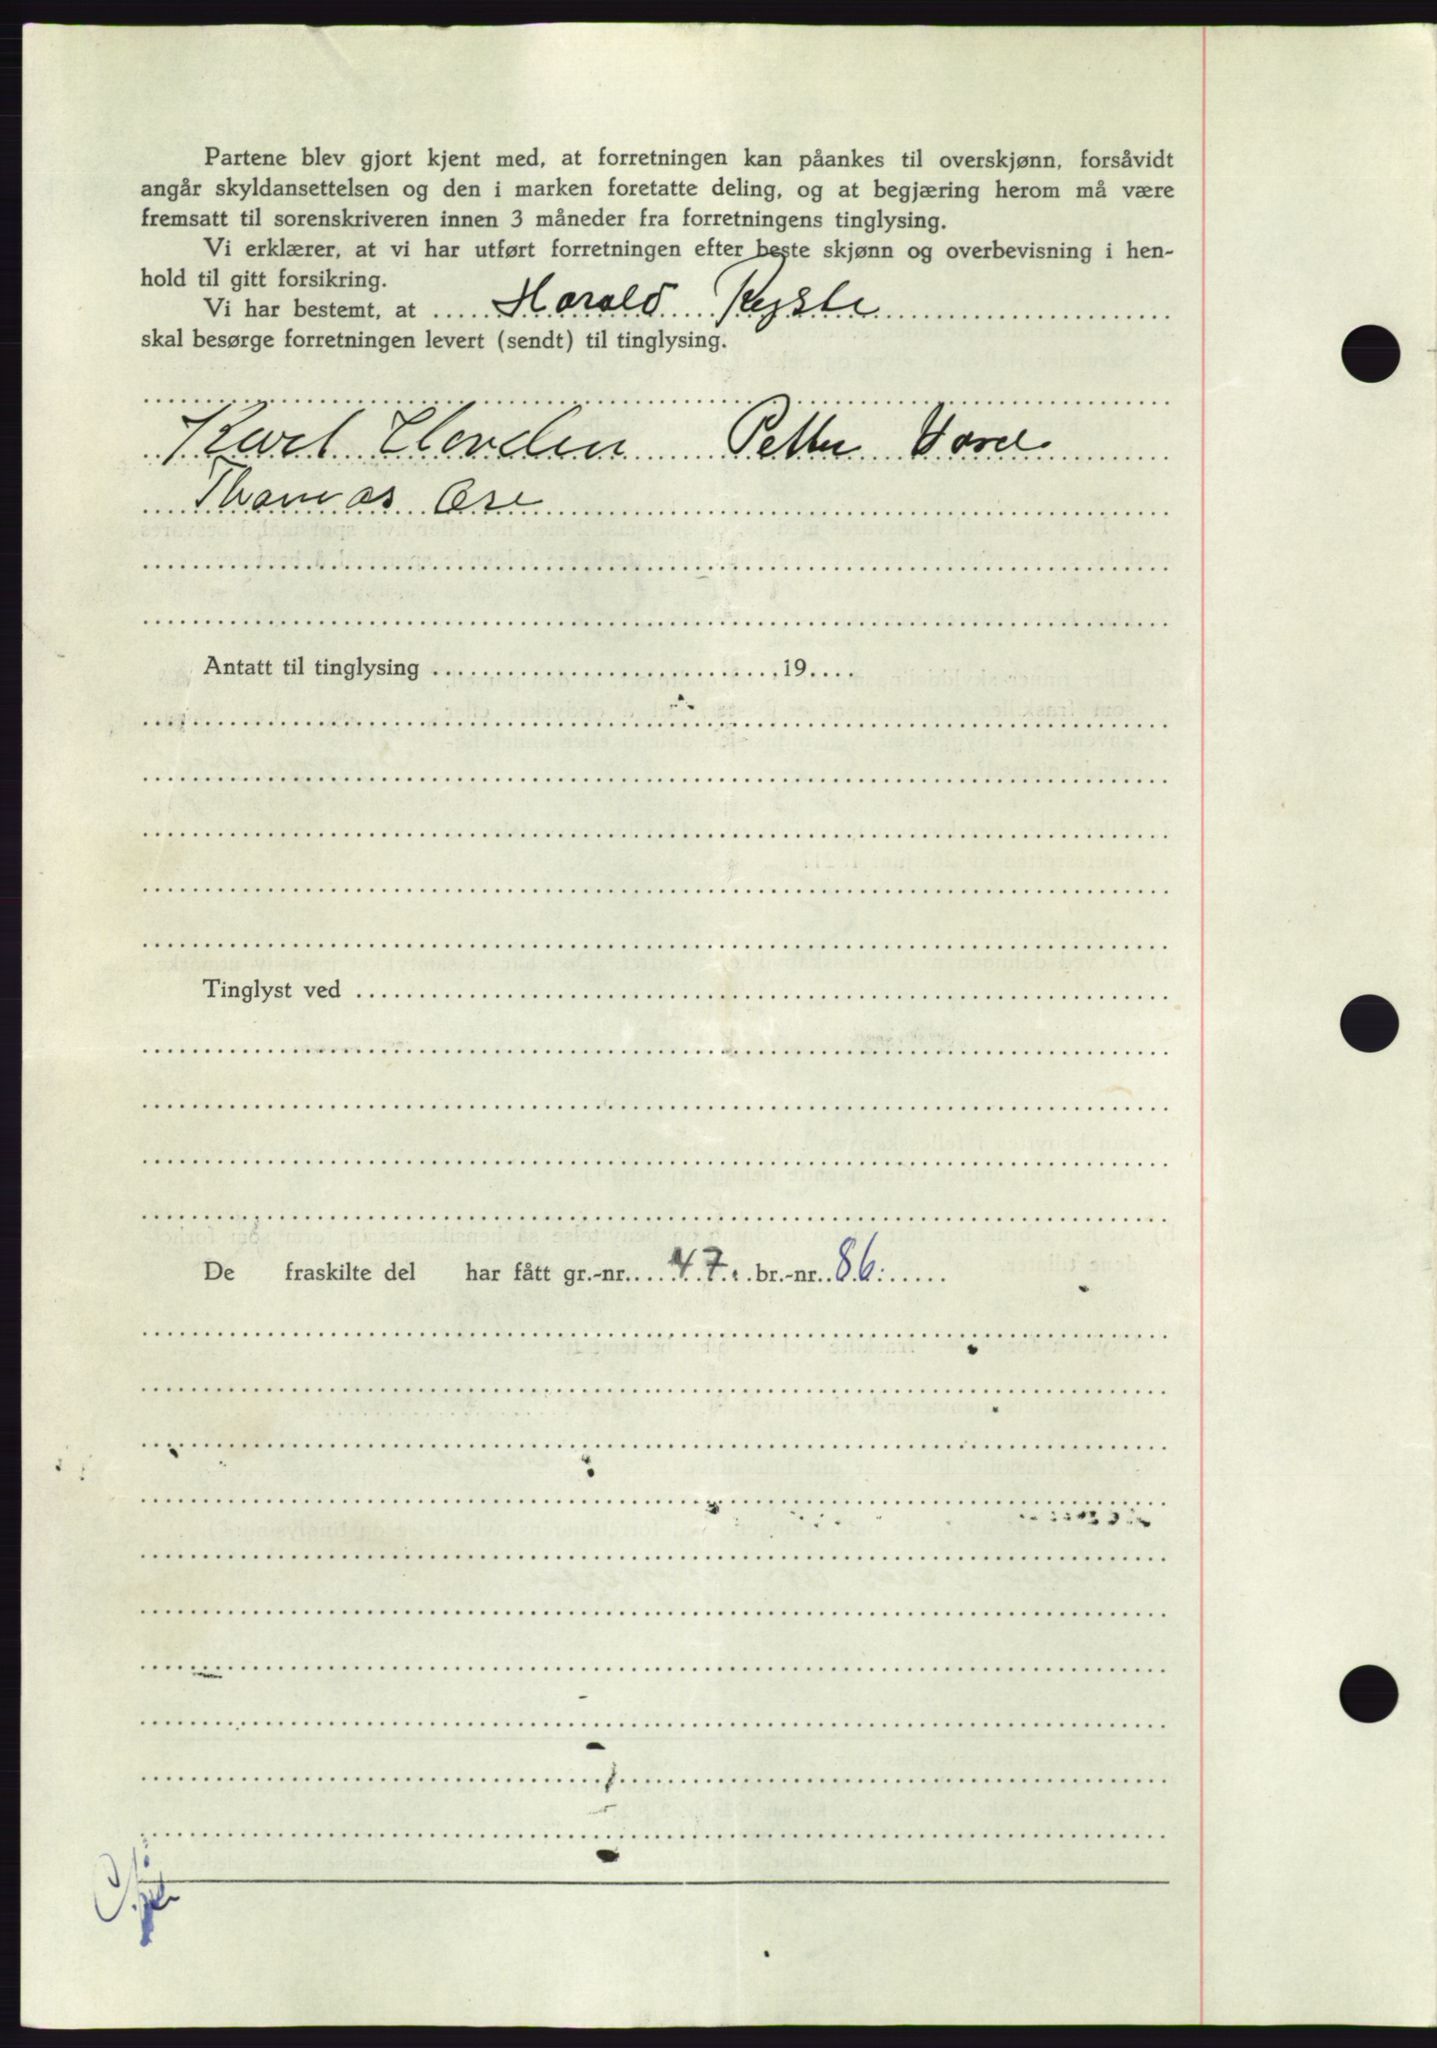 Partene blev gjort kjent med, at forretningen kan påankes til overskjønn, forsåvidt
angår skyldansettelsen og den i marken foretatte deling, og at begjæring herom må være
fremsatt til sorenskriveren innen 3 måneder fra forretningens tinglysing.
Vi erklærer, at vi har utført forretningen efter beste skjønn og overbevisning i hen-
hold til gitt forsikring.
Vi har bestemt, at ..... Harald Røyste
skal besørge forretningen levert (sendt) til tinglysing.
Karl Hovden Petter
Thomas Ose
Antatt til tinglysing ............................, 19....
Tinglyst ved
De fraskilte del har fått gr.-nr. 47. br.-nr. 86.